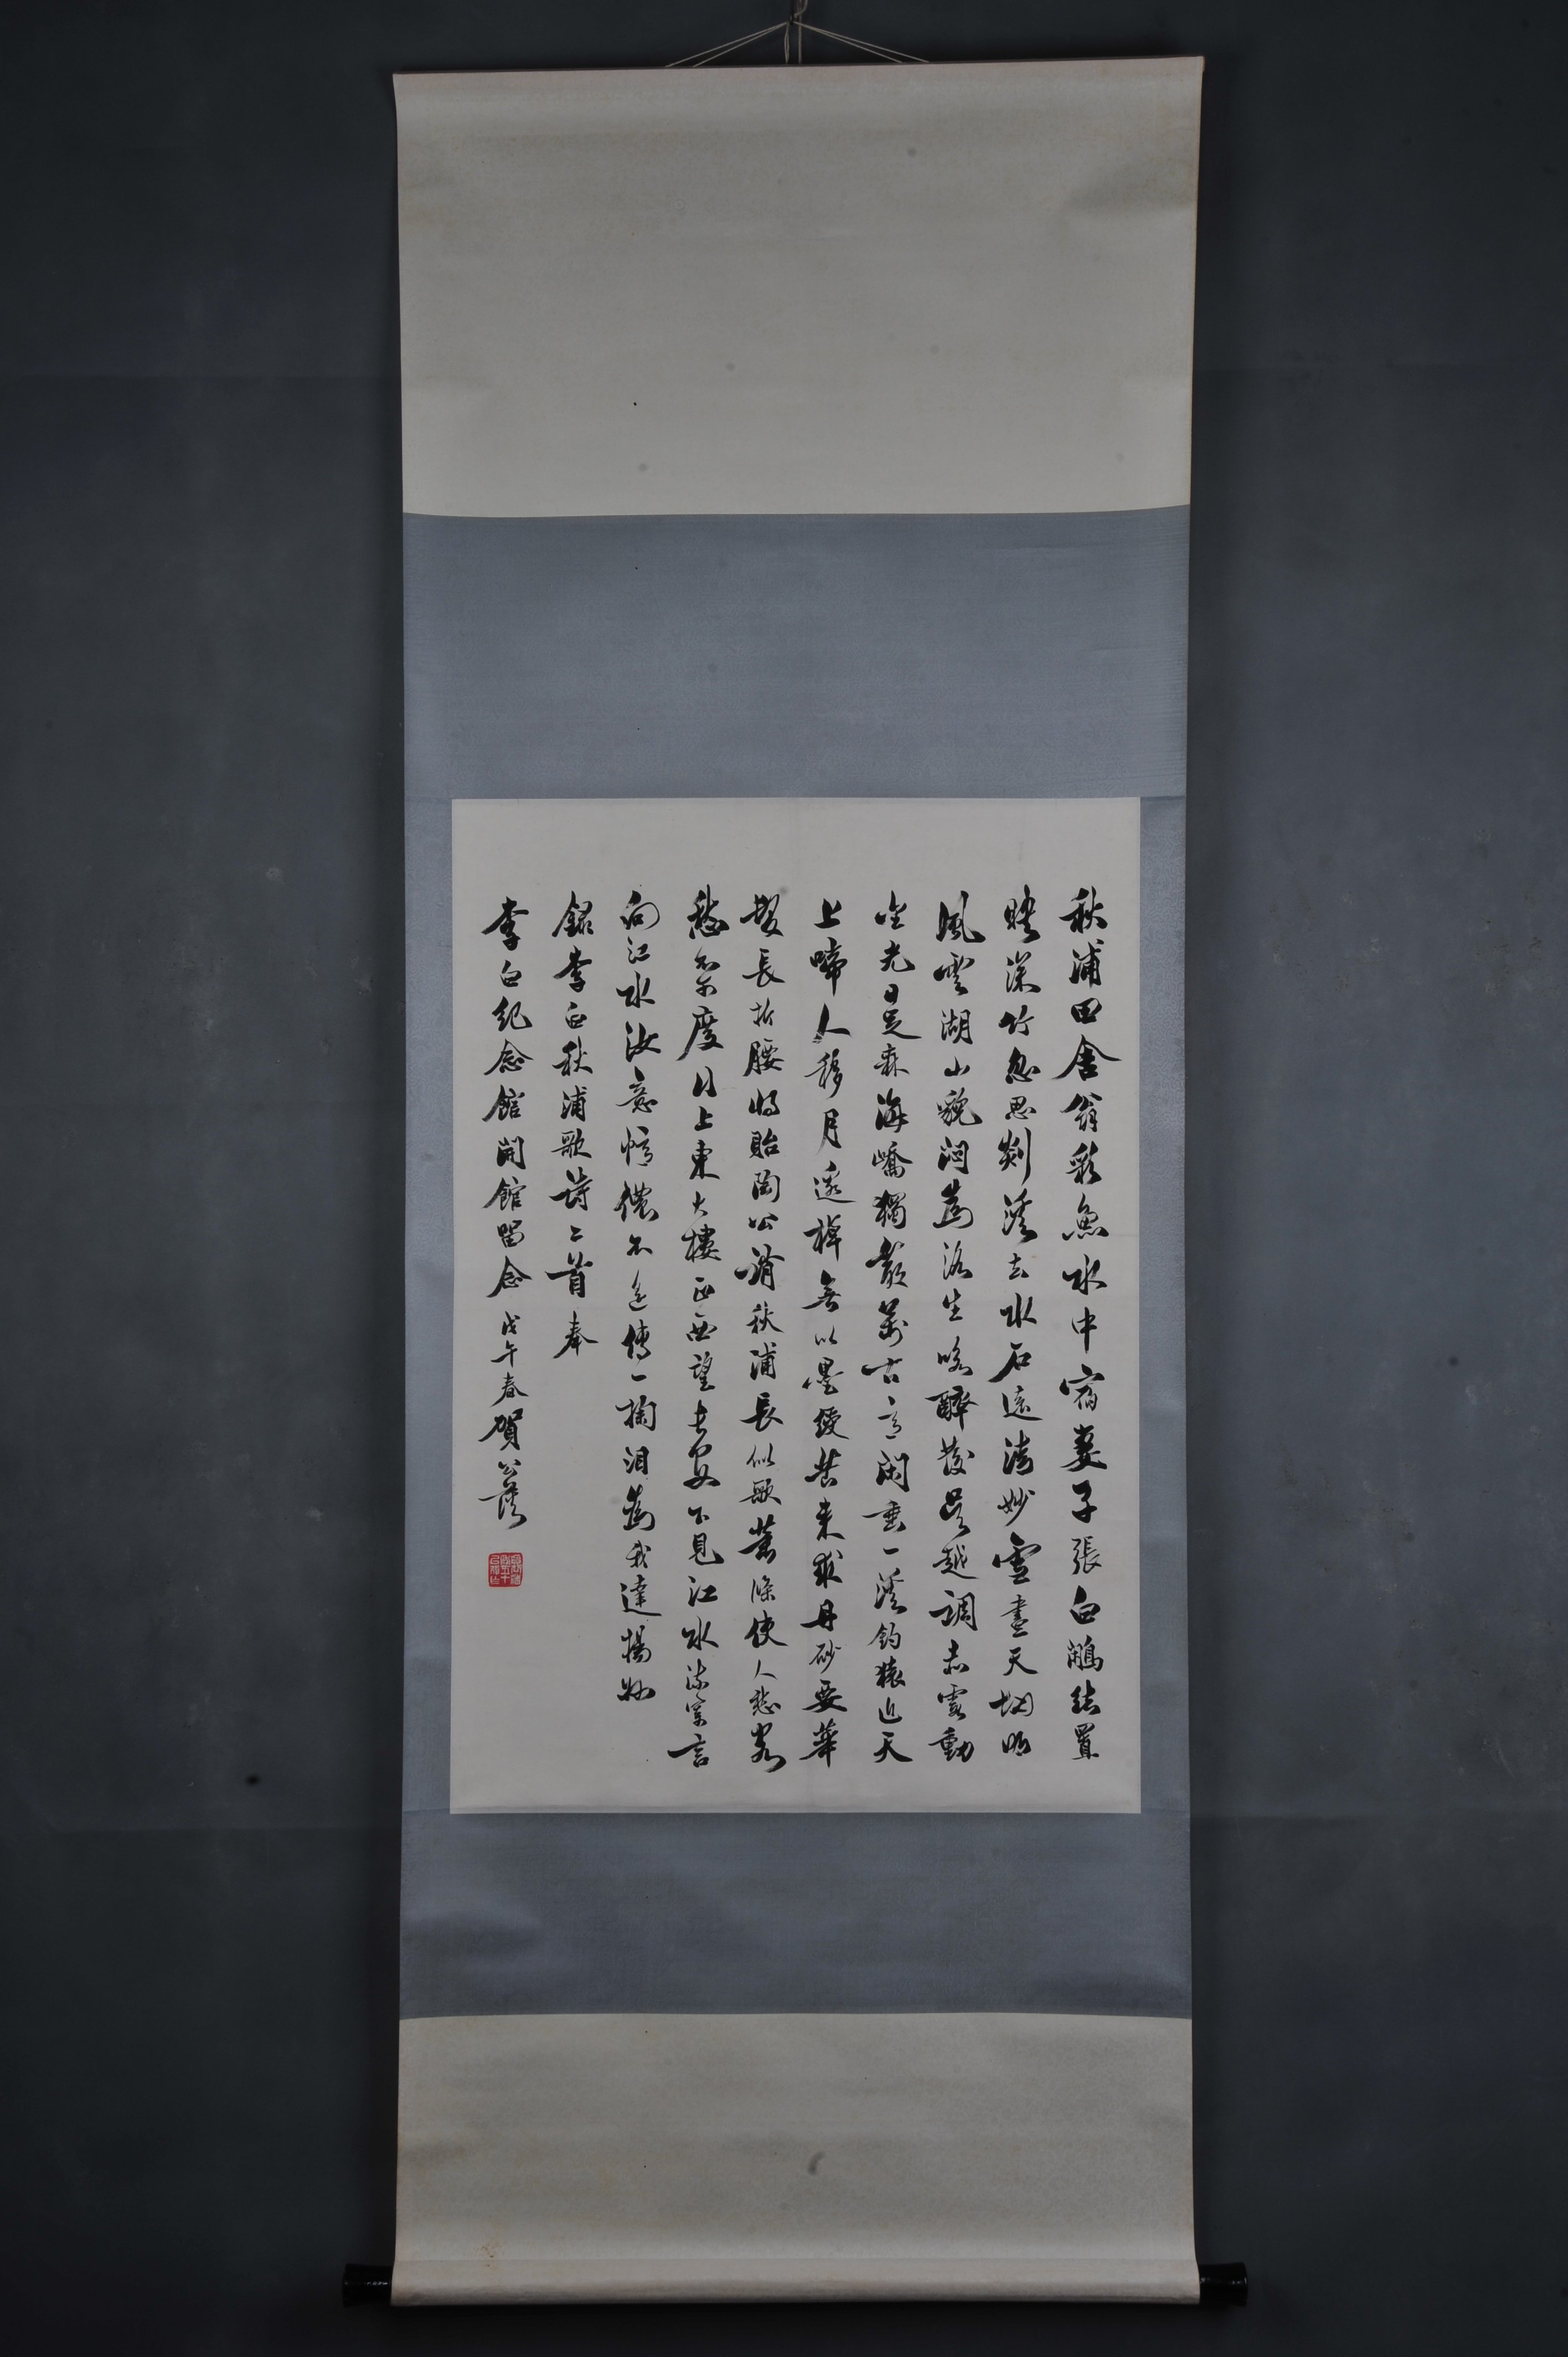 秋浦田舍翁彩魚水中宿妻子張白鷴結罝
映深竹忽思剡溪去水石遠清妙雪盡天地明
風雲湖山貌悶為洛生咏醉發吳越調赤霞動
金光日足森海嶠獨散萬古意閑垂一溪釣猿近天
上啼人移月邊棹無以墨綬苦來求丹砂要華
髮長折腰將貽陶公誚秋浦長似歌蕭條使人愁客
愁不可度行上東大樓正西望長安下見江水流寄言
向江水汝意憶儂不遙傳一掬淚為我達揚州
錄李白秋浦歌詩二首奉
李白紀念館開館留念戊午春賀公